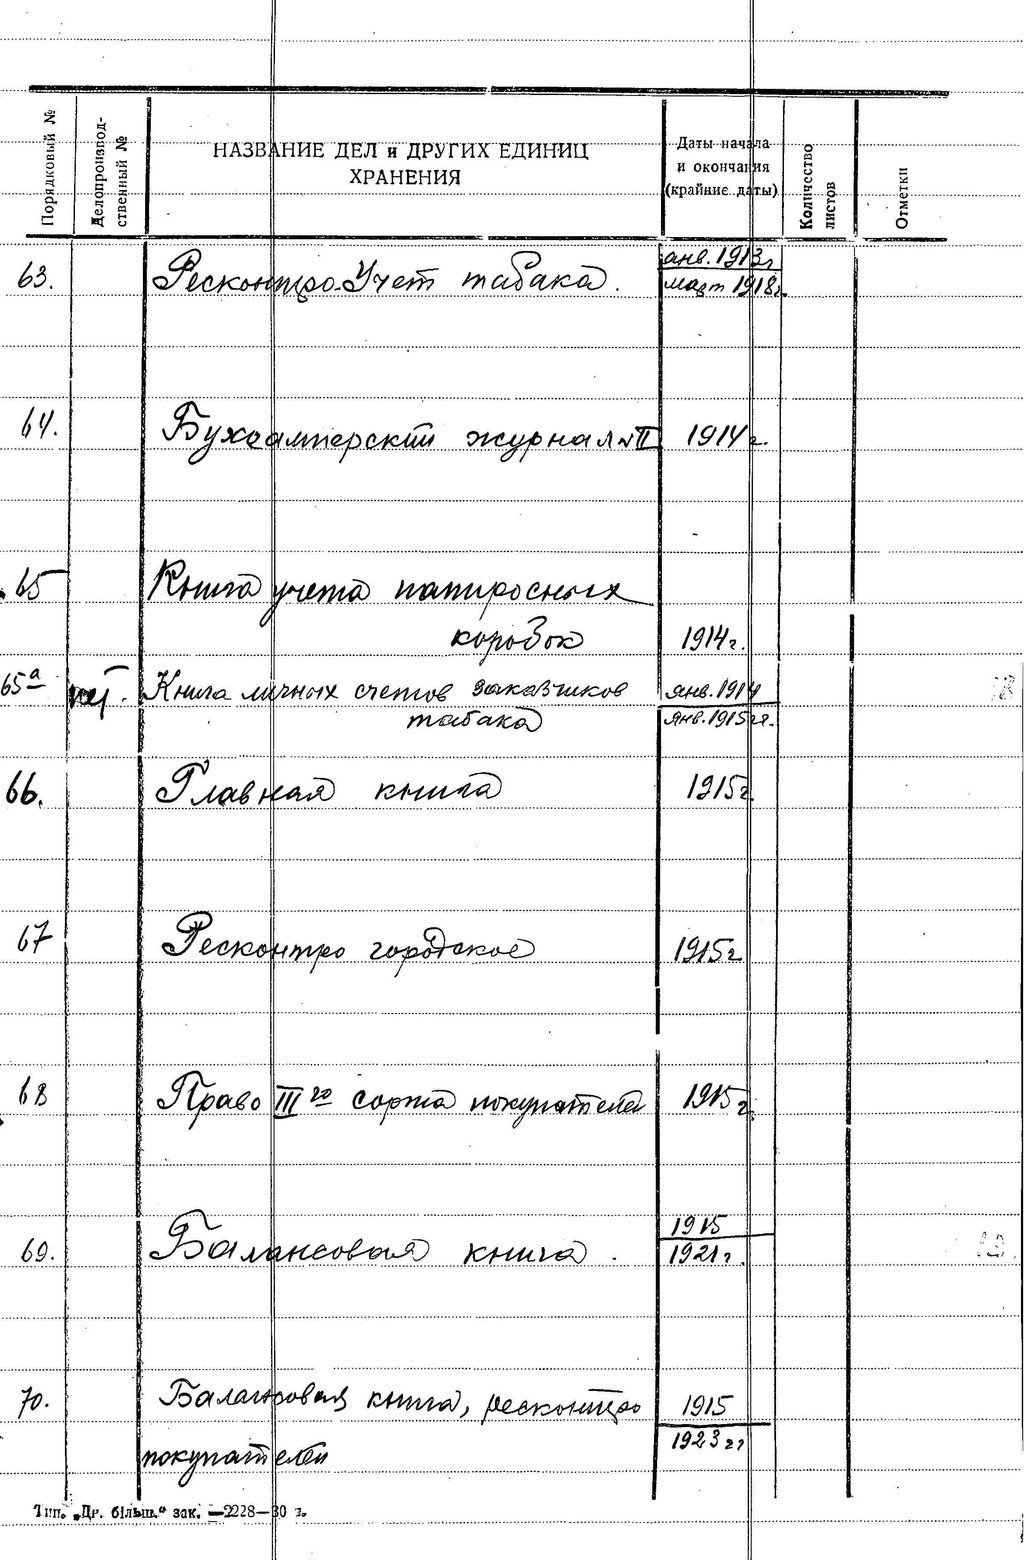 Порядковый №
Делопроизвод-
ственный №
НАЗВАНИЕ ДЕЛ и ДРУГИХ ЕДИНИЦ
ХРАНЕНИЯ
Даты начала
и окончания
(крайние даты)
Количество
листов
Отметки
63. Ресконтро-Учет табака. янв. 1913г
март 1918г.
64. Бухгалтерский журнал №II 1914г.
65 Книга учета папиросных
коробок 1914г.
65а нет. Книга личных счетов заказчиков янв. 1914
табака янв. 1915гг.
66. Главная книга 1915г.
67 Ресконтро городское 1915г
68 Право IIIго сорта покупателей 1915г.
69. Балансовая книга. 1915
1921г.
70. Балансовая книга, ресконтро 1915
покупателей 1923гг
Тип. „Др. більш.“ зак. —2228—30 т.